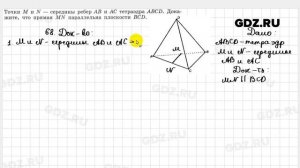 GDZ.RU
Точки M и N — середины ребер AB и AC тетраэдра ABCD. Дока-
жите, что прямая MN параллельна плоскости BCD.
68. Док-во
1. M и N - середины AB и AC =>
M
N
Дано:
ABCD - тетраэдр
M и N - середины
AB и AC
Док-ть:
MN || BCD